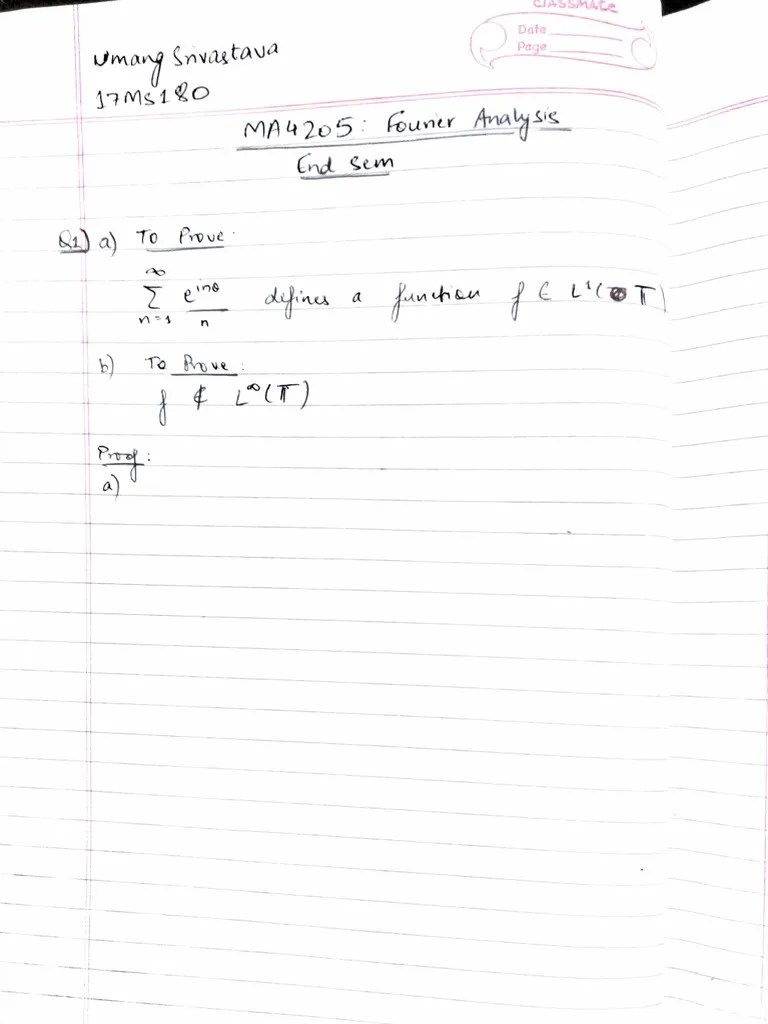 CLASSMATE
Date
Page
Umang Srivastava
17MS180
MA4205: Fourier Analysis
End Sem
Q1) a) To Prove:
∞
∑ e^{inθ}/n defines a function f ∈ L¹(𝕋)
n=1
b) To Prove:
f ∉ L^∞(𝕋)
Proof:
a)